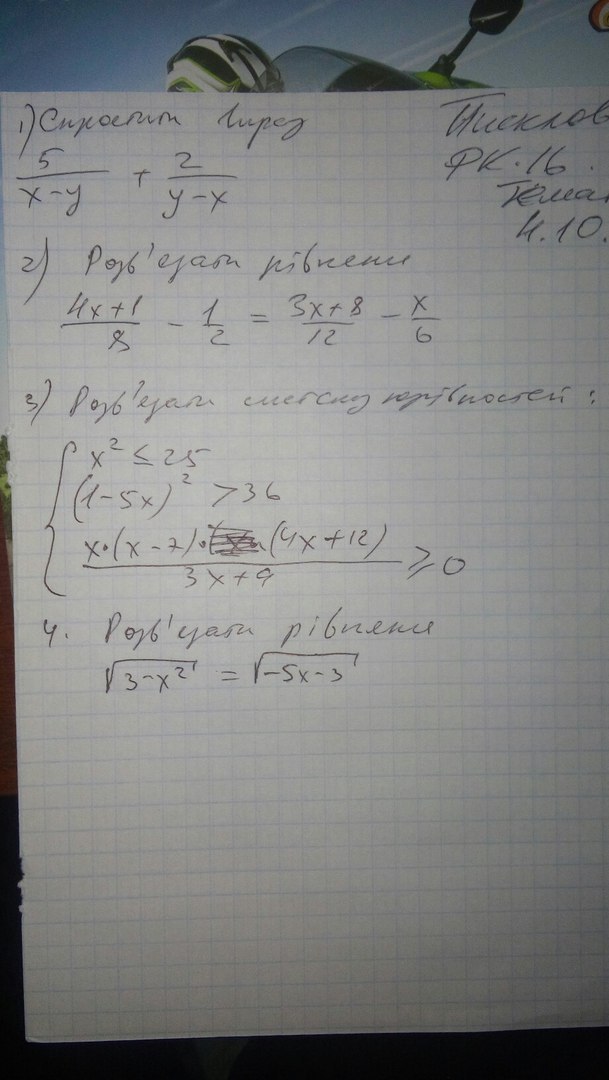 1) Спростити вираз
5/(x-y) + 2/(y-x)
Пісклов
ФК-16.
Тема
4.10.
2) Розв'язати рівнення
(4x+1)/8 - 1/2 = (3x+8)/12 - x/6
3) Розв'язати систему нерівностей:
x² ≤ 25
(1-5x)² > 36
(x·(x-7)·(4x+12))/(3x+9) ≥ 0
4. Розв'язати рівняння
√(3-x²) = √(-5x-3)